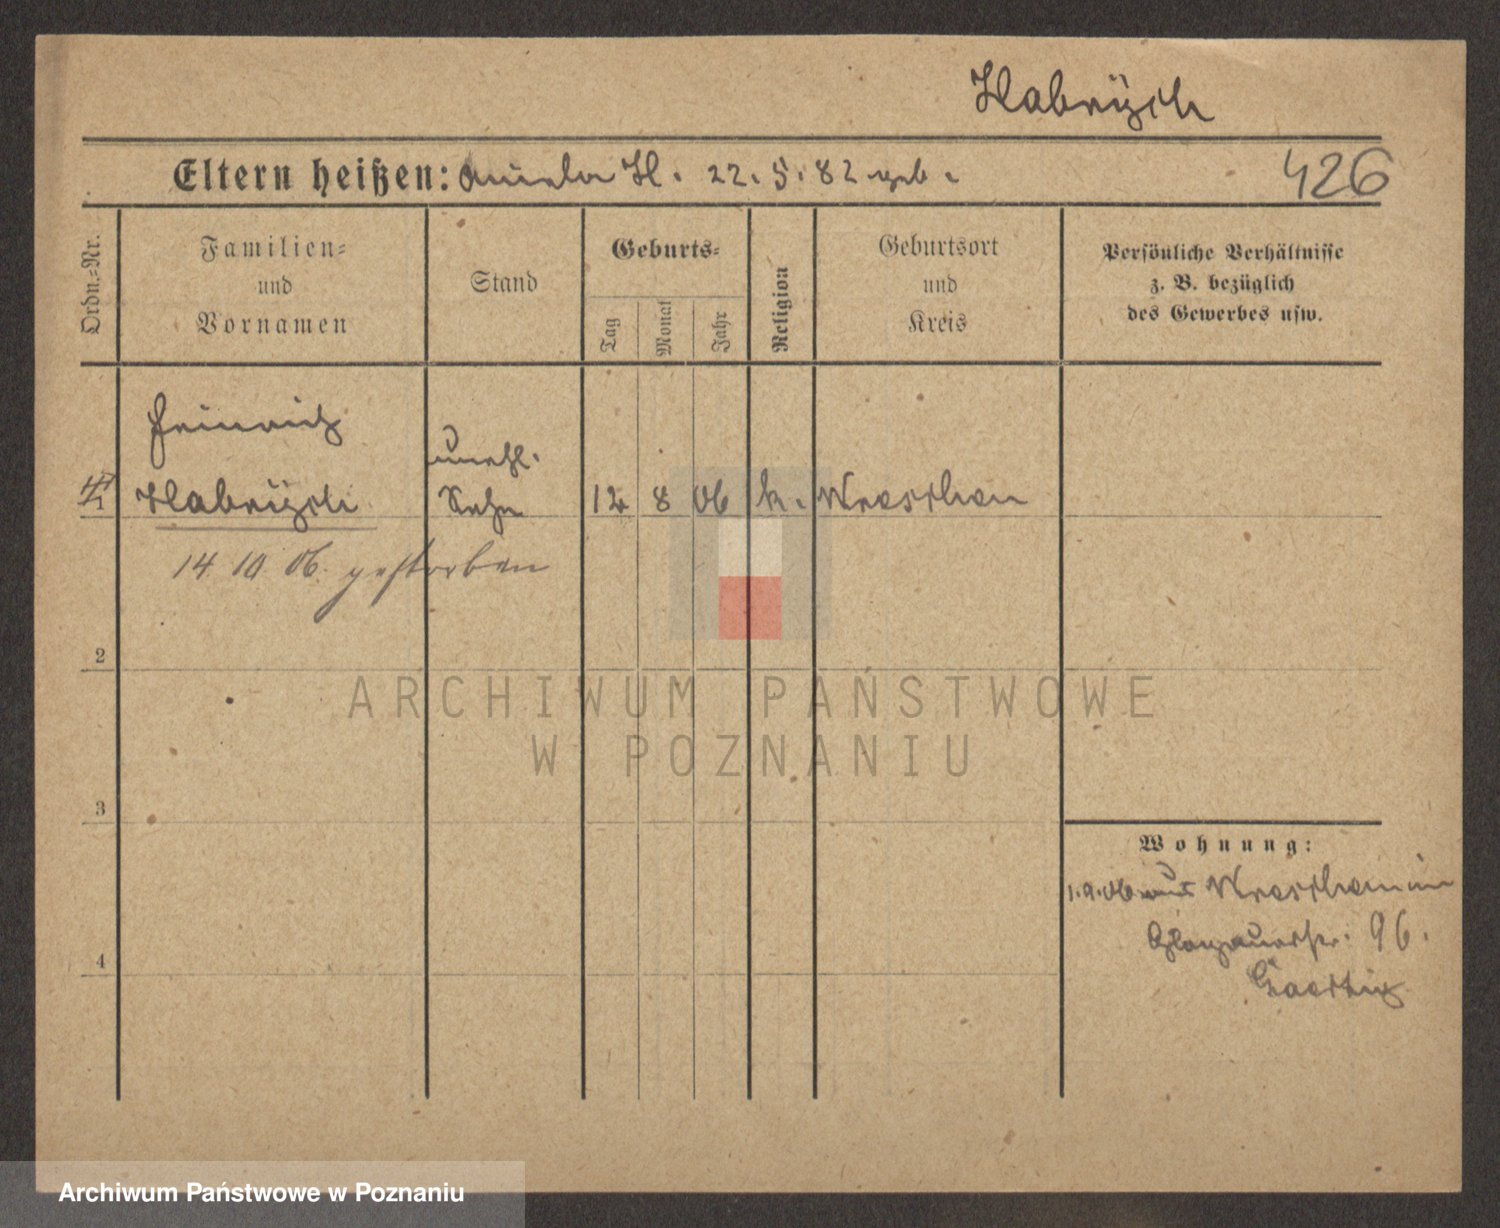 Habrÿch
Eltern heißen: Aniela H. 22. 5. 82 geb.
426
Ordn.=Nr.
Familien=
und
Vornamen
Stand
Geburts=
Tag
Monat
Jahr
Religion
Geburtsort
und
Kreis
Persönliche Verhältnisse
z. B. bezüglich
des Gewerbes usw.
Heinrich
unehl.
1
Habrÿch
Sohn
12 8 06 k. Wreschen
14 10 06. gestorben
2
ARCHIWUM PAŃSTWOWE
W POZNANIU
3
Wohnung:
1.9.06 aus Wreschen in
Glogauerstr. 96.
4
Archiwum Państwowe w Poznaniu